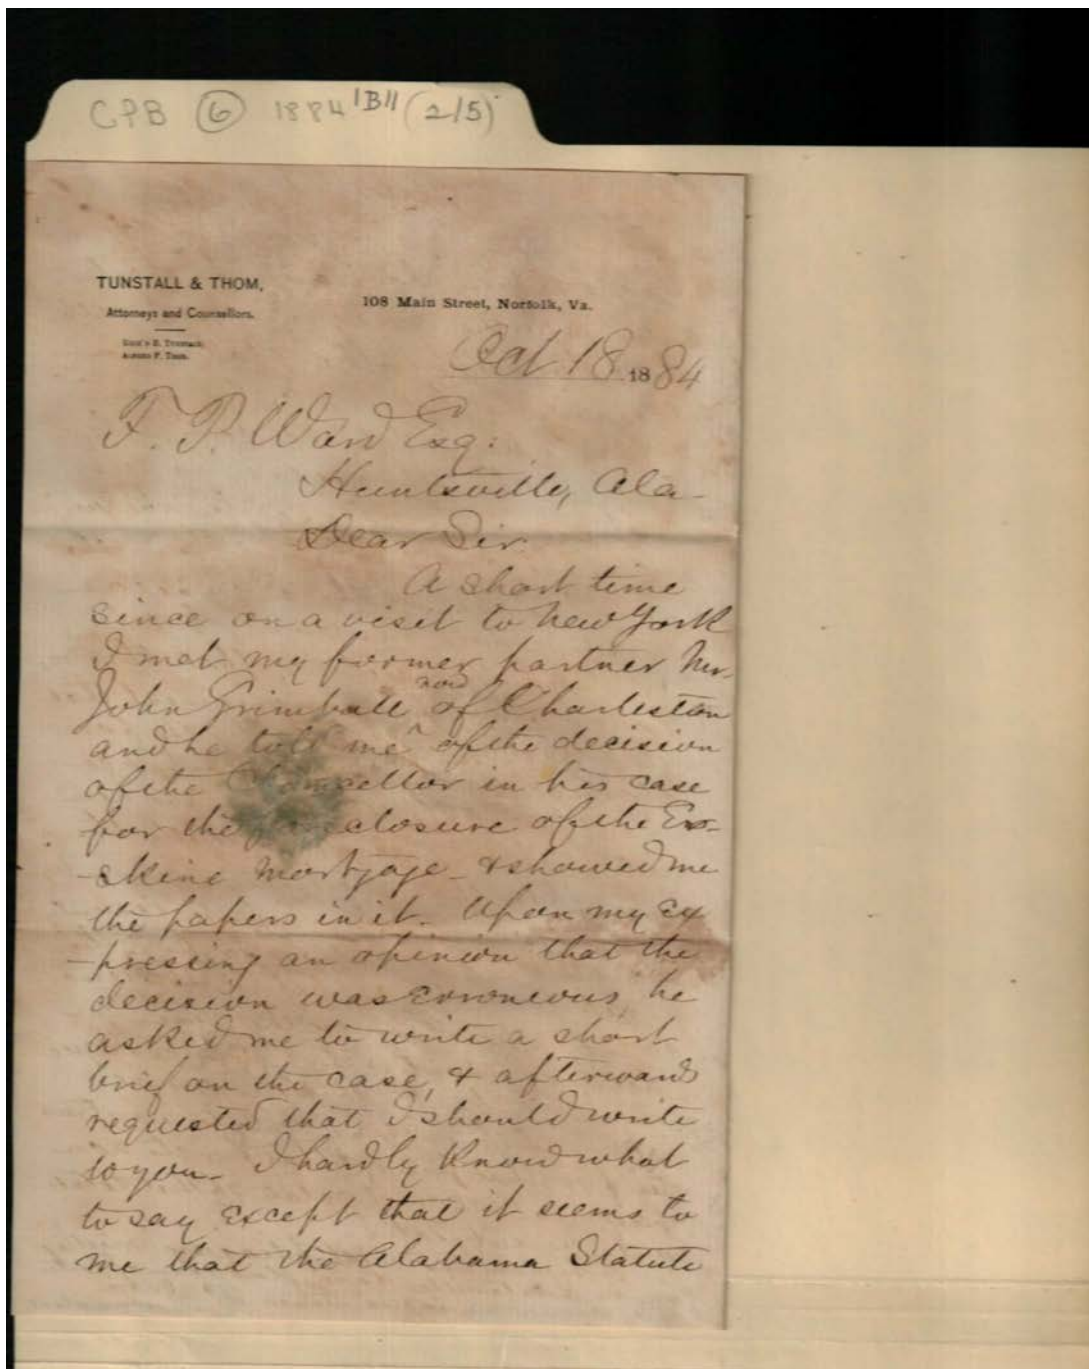 CPB 6 1884 "B" (2/5)
TUNSTALL & THOM,
Attorneys and Counsellors.
108 Main Street, Norfolk, Va.
Oct 18 1884
F. P. Ward Esq:
Huntsville, Ala-
Dear Sir
A short time
since on a visit to New York
I met my former partner Mr.
John Grimball now of Charleston
and he told me of the decision
of the Chancellor in his case
for the foreclosure of the Er-
-skine Mortgage - & showed me
the papers in it. Upon my ex
-pressing an opinion that the
decision was erroneous, he
asked me to write a short
brief on the case, & afterwards
requested that I should write
to you - I hardly know what
to say except that it seems to
me that the Alabama Statute